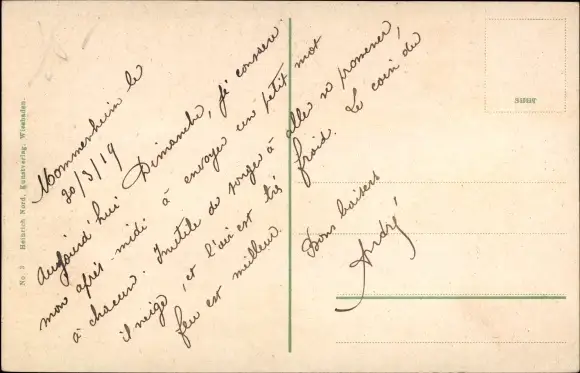 Mommenheim le
30/3/19
Aujourd'hui Dimanche, je consacre
mon après-midi à envoyer un petit mot
à chacun. Inutile de songer à aller se promener,
il neige, et l'air est très froid. Le coin du
feu est meilleur.
Bons baisers
André
No. 3 Heinrich Nord, Kunstverlag, Wiesbaden.